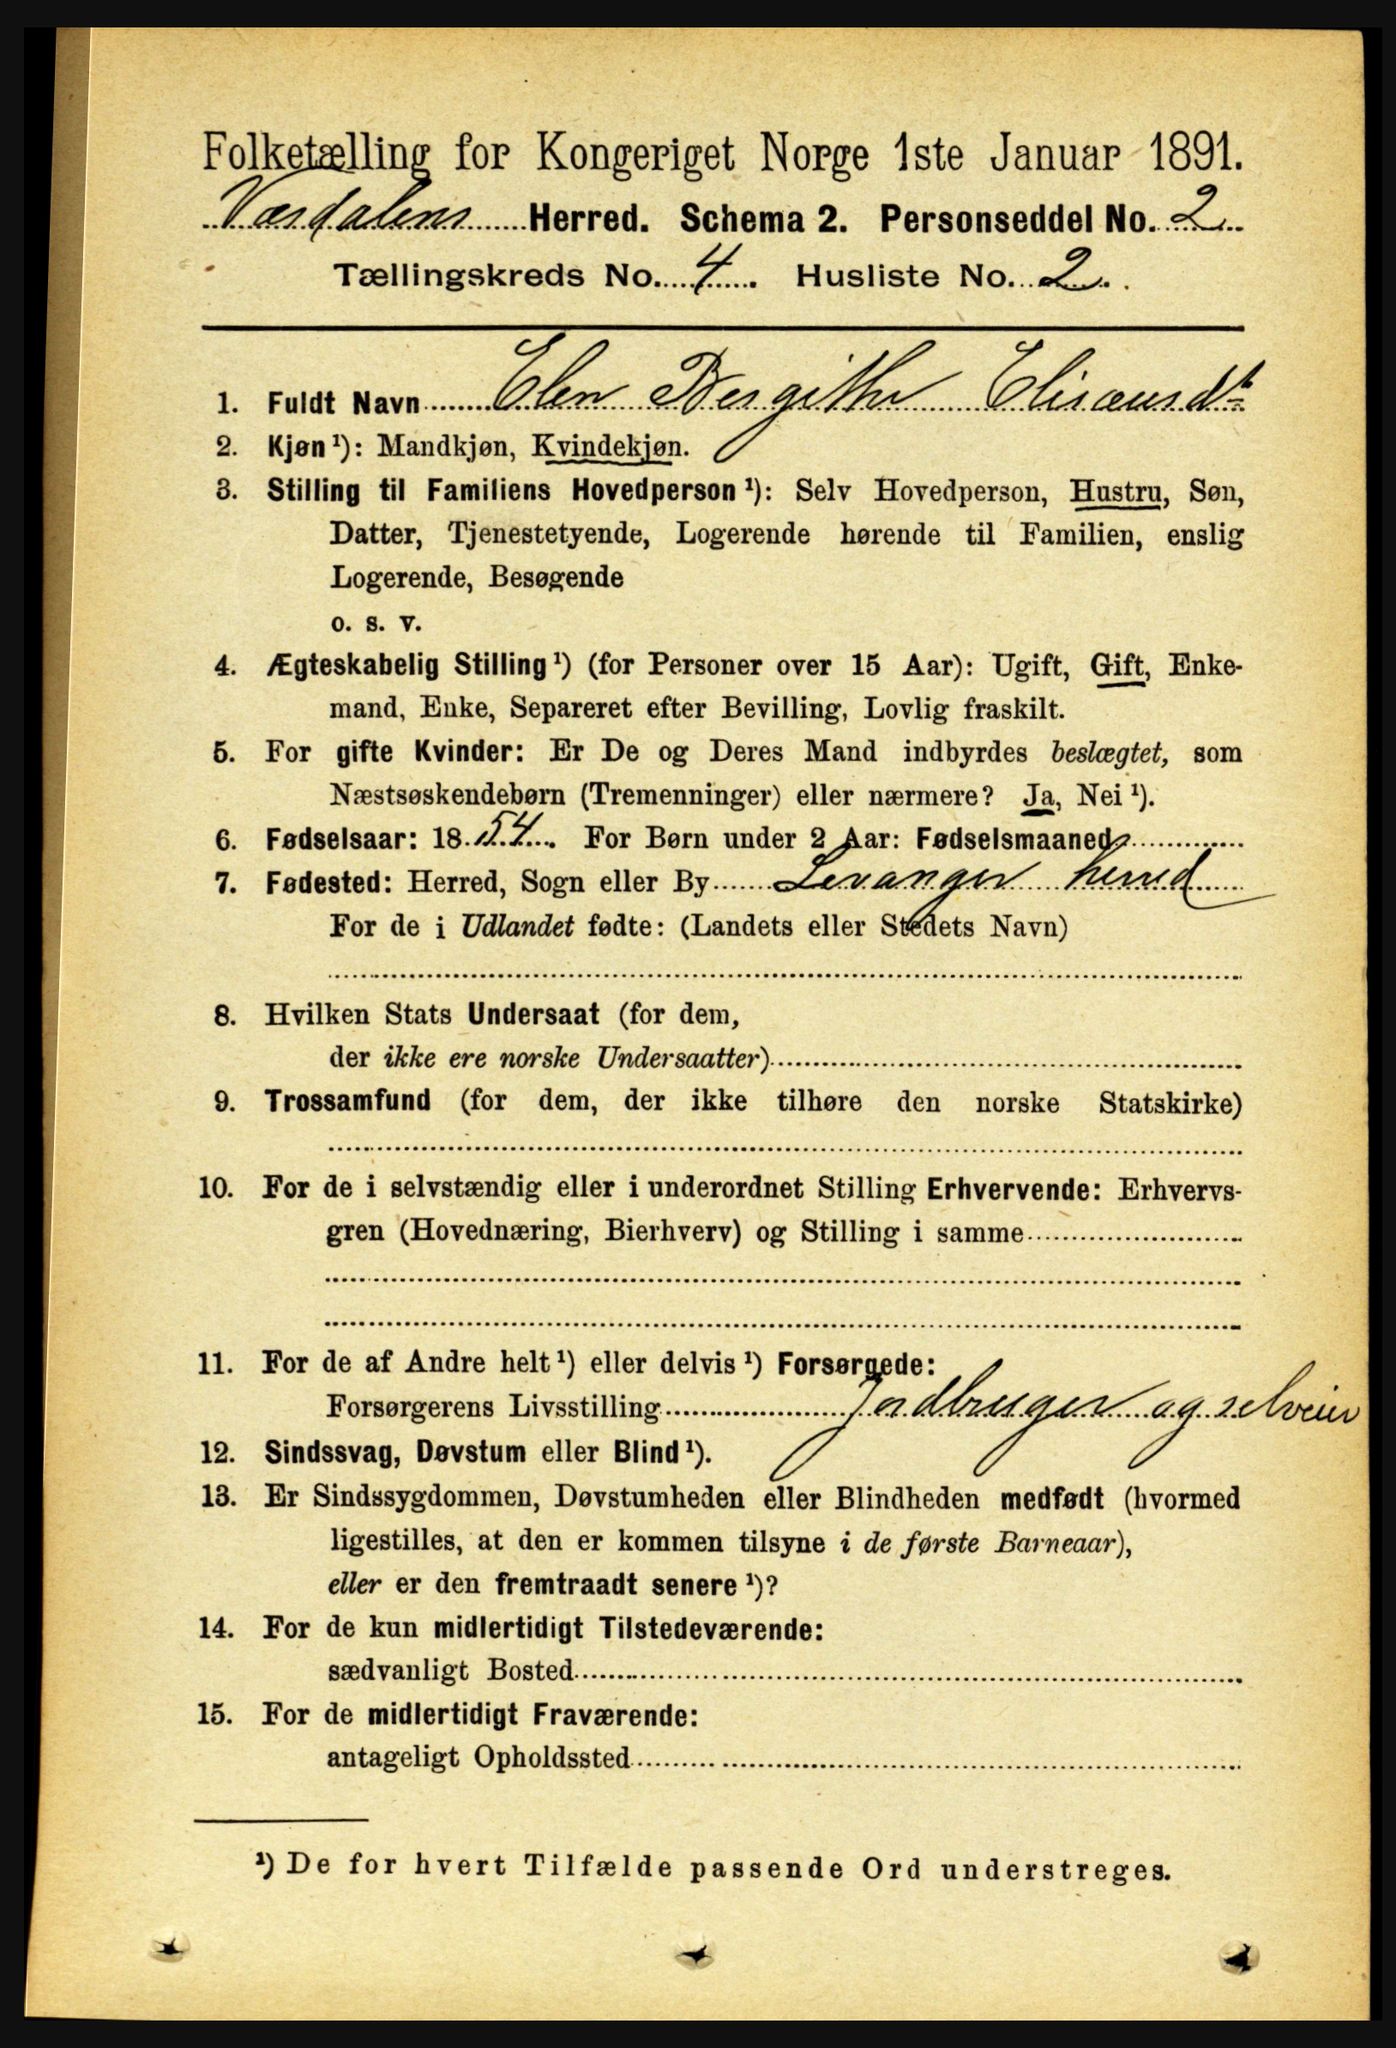 Folketælling for Kongeriget Norge 1ste Januar 1891.
Værdalens Herred. Schema 2. Personseddel No. 2
Tællingskreds No. 4. Husliste No. 2.
1. Fuldt Navn Elen Bergithe Elisæusdt
2. Kjøn ¹): Mandkjøn, Kvindekjøn.
3. Stilling til Familiens Hovedperson ¹): Selv Hovedperson, Hustru, Søn,
Datter, Tjenestetyende, Logerende hørende til Familien, enslig
Logerende, Besøgende
o. s. v.
4. Ægteskabelig Stilling ¹) (for Personer over 15 Aar): Ugift, Gift, Enke-
mand, Enke, Separeret efter Bevilling, Lovlig fraskilt.
5. For gifte Kvinder: Er De og Deres Mand indbyrdes beslægtet, som
Næstsøskendebørn (Tremenninger) eller nærmere? Ja, Nei ¹).
6. Fødselsaar: 1854. For Børn under 2 Aar: Fødselsmaaned
7. Fødested: Herred, Sogn eller By Levanger herred
For de i Udlandet fødte: (Landets eller Stedets Navn)
8. Hvilken Stats Undersaat (for dem,
der ikke ere norske Undersaatter)
9. Trossamfund (for dem, der ikke tilhøre den norske Statskirke)
10. For de i selvstændig eller i underordnet Stilling Erhvervende: Erhvervs-
gren (Hovednæring, Bierhverv) og Stilling i samme
11. For de af Andre helt ¹) eller delvis ¹) Forsørgede:
Forsørgerens Livsstilling Jordbruger og selveier
12. Sindssvag, Døvstum eller Blind ¹).
13. Er Sindssygdommen, Døvstumheden eller Blindheden medfødt (hvormed
ligestilles, at den er kommen tilsyne i de første Barneaar),
eller er den fremtraadt senere ¹)?
14. For de kun midlertidigt Tilstedeværende:
sædvanligt Bosted
15. For de midlertidigt Fraværende:
antageligt Opholdssted
¹) De for hvert Tilfælde passende Ord understreges.